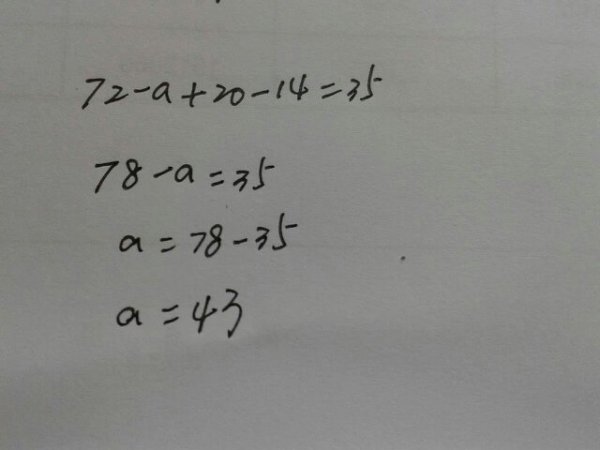 72-a+20-14=35
78-a=35
a=78-35
a=43